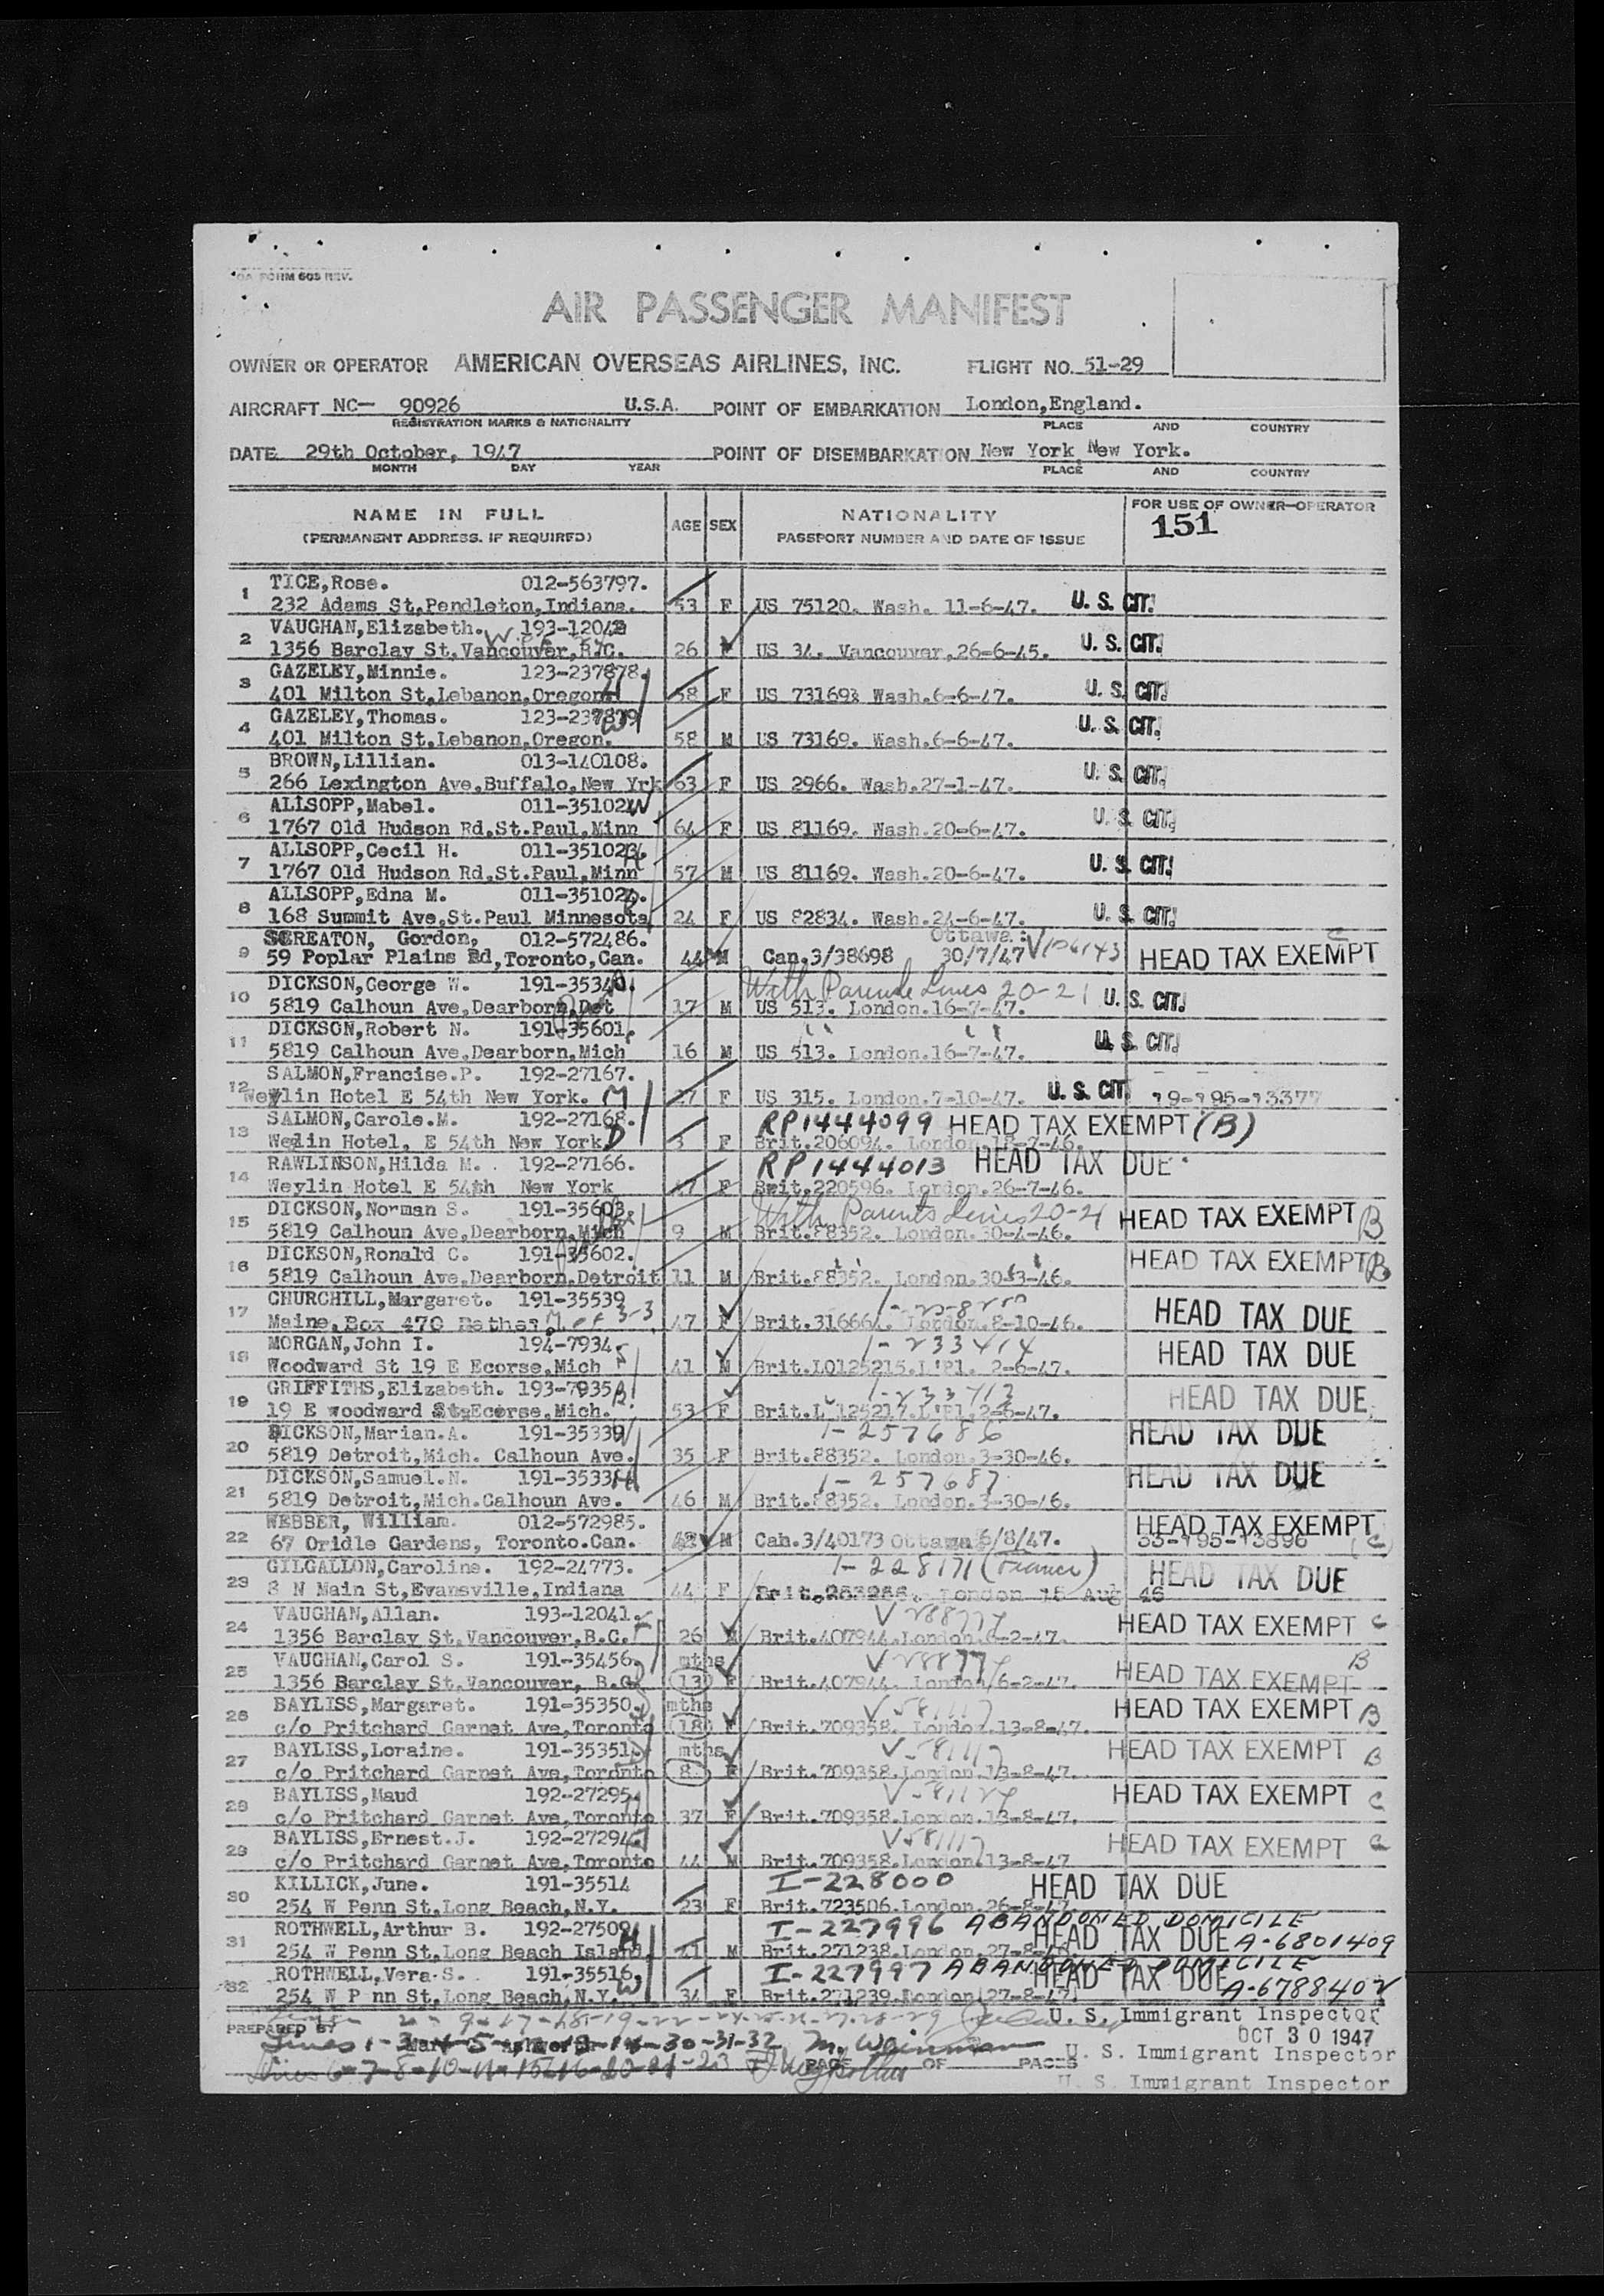 FORM 605 REV.
AIR PASSENGER MANIFEST
OWNER OR OPERATOR AMERICAN OVERSEAS AIRLINES, INC. FLIGHT NO. 51-29
AIRCRAFT NC- 90926 U.S.A. POINT OF EMBARKATION London,England.
REGISTRATION MARKS & NATIONALITY PLACE AND COUNTRY
DATE 29th October, 1947 POINT OF DISEMBARKATION New York New York.
MONTH DAY YEAR PLACE AND COUNTRY
NAME IN FULL AGE SEX NATIONALITY FOR USE OF OWNER-OPERATOR
(PERMANENT ADDRESS. IF REQUIRED) PASSPORT NUMBER AND DATE OF ISSUE 151
TICE,Rose. 012-563797.
1 232 Adams St,Pendleton,Indiana. 53 F US 75120. Wash. 11-6-47. U. S. CIT.
VAUGHAN,Elizabeth. 193-12042
2 1356 Barclay St,Vancouver,B.C. 26 F US 34. Vancouver,26-6-45. U. S. CIT.
GAZELEY,Minnie. 123-237878.
3 401 Milton St,Lebanon,Oregon. 58 F US 73169. Wash.6-6-47. U. S. CIT.
GAZELEY,Thomas. 123-237879
4 401 Milton St,Lebanon,Oregon. 58 M US 73169. Wash.6-6-47. U. S. CIT.
BROWN,Lillian. 013-140108.
5 266 Lexington Ave,Buffalo,New Yrk 63 F US 2966. Wash.27-1-47. U. S. CIT.
ALLSOPP,Mabel. 011-351022 W
6 1767 Old Hudson Rd,St.Paul,Minn 64 F US 81169. Wash.20-6-47. U. S. CIT.
ALLSOPP,Cecil H. 011-351023.
7 1767 Old Hudson Rd,St.Paul,Minn 57 M US 81169. Wash.20-6-47. U. S. CIT.
ALLSOPP,Edna M. 011-351020.
8 168 Summit Ave,St.Paul Minnesota 24 F US 82834. Wash.24-6-47. U. S. CIT.
SCREATON, Gordon, 012-572486. Ottawa:
9 59 Poplar Plains Rd,Toronto,Can. 44 M Can.3/38698 30/7/47 V106143 HEAD TAX EXEMPT C
DICKSON,George W. 191-35340. With Parents Lines 20-21
10 5819 Calhoun Ave,Dearborn,Det 17 M US 513. London.16-7-47. U. S. CIT.
DICKSON,Robert N. 191-35601.
11 5819 Calhoun Ave,Dearborn,Mich 16 M US 513. London.16-7-47. U. S. CIT.
SALMON,Francise.P. 192-27167.
12 Weylin Hotel E 54th New York. M 27 F US 315. London.7-10-47. U. S. CIT. 19-195-13377
SALMON,Carole.M. 192-27168. RP1444099 HEAD TAX EXEMPT (B)
13 Weylin Hotel, E 54th New York D 3 F Brit.206094. London.18-7-46.
RAWLINSON,Hilda M. 192-27166. RP1444013 HEAD TAX DUE
14 Weylin Hotel E 54th New York F Brit.220596. London.26-7-46.
DICKSON,Norman S. 191-35603. With Parents Lines 20-21 HEAD TAX EXEMPT B
15 5819 Calhoun Ave,Dearborn,Mich 9 M Brit.88352. London.30-4-46.
DICKSON,Ronald C. 191-35602. HEAD TAX EXEMPT B
16 5819 Calhoun Ave,Dearborn,Detroit 11 M Brit.88352. London.30-3-46.
CHURCHILL,Margaret. 191-35539 HEAD TAX DUE
17 Maine,Box 470 Bethel 47 F Brit.316664. London.8-10-46.
MORGAN,John I. 194-7934 I-233414 HEAD TAX DUE
18 Woodward St 19 E Ecorse,Mich 41 M Brit.L0125215.L'Pl. 2-6-47.
GRIFFITHS,Elizabeth. 193-7935 I-233413 HEAD TAX DUE
19 19 E woodward St,Ecorse,Mich. 53 F Brit.L 125217.L'Pl.2-6-47.
DICKSON,Marian.A. 191-35339 W I-257686 HEAD TAX DUE
20 5819 Detroit,Mich. Calhoun Ave. 35 F Brit.88352. London.3-30-46.
DICKSON,Samuel.N. 191-35338 H I-257687 HEAD TAX DUE
21 5819 Detroit,Mich.Calhoun Ave. 46 M Brit.88352. London.3-30-46.
WEBBER, William. 012-572985. HEAD TAX EXEMPT
22 67 Oridle Gardens, Toronto.Can. 42 M Can.3/40173 Ottawa 6/8/47. 55-195-13896 (C)
GILGALLON,Caroline. 192-24773. I-228171 (France) HEAD TAX DUE
23 8 N Main St,Evansville,Indiana 44 F Brit.263266. London 15 Aug 46
VAUGHAN,Allan. 193-12041. V HEAD TAX EXEMPT C
24 1356 Barclay St,Vancouver,B.C. 26 M Brit.407944.London.6-2-47.
VAUGHAN,Carol S. 191-35456. mths V HEAD TAX EXEMPT B
25 1356 Barclay St,Vancouver, B.C. 13 F Brit.407944. London/6-2-47.
BAYLISS,Margaret. 191-35350. mths V HEAD TAX EXEMPT B
26 c/o Pritchard Garnet Ave,Toronto 18 F Brit.709358. London.13-8-47.
BAYLISS,Loraine. 191-35351. mths V HEAD TAX EXEMPT B
27 c/o Pritchard Garnet Ave,Toronto 8 F Brit.709358.London.13-8-47.
BAYLISS,Maud 192-27295. V HEAD TAX EXEMPT C
28 c/o Pritchard Garnet Ave,Toronto 37 F Brit.709358.London.13-8-47.
BAYLISS,Ernest.J. 192-27294. V HEAD TAX EXEMPT C
29 c/o Pritchard Garnet Ave,Toronto 44 M Brit.709358.London.13-8-47
KILLICK,June. 191-35514 I-228000 HEAD TAX DUE
30 254 W Penn St,Long Beach,N.Y. 23 F Brit.723506.London.26-8-47.
ROTHWELL,Arthur B. 192-27509 H I-227996 ABANDONED DOMICILE
31 254 W Penn St,Long Beach Island, 41 M Brit.271238.London.27-8-46. HEAD TAX DUE A-6801409
ROTHWELL,Vera.S. 191-35516. W I-227997 ABANDONED DOMICILE
32 254 W P nn St,Long Beach,N.Y. 34 F Brit.271239.London 27-8-47. HEAD TAX DUE A-6788402
U. S. Immigrant Inspector
PREPARED BY
OCT 30 1947
Lines 1-3-4-5-12-13-14-30-31-32 M. Weinman
PAGE OF PAGES U. S. Immigrant Inspector
Lines 6-7-8-10-11-15-16-20-21-23
U. S. Immigrant Inspector